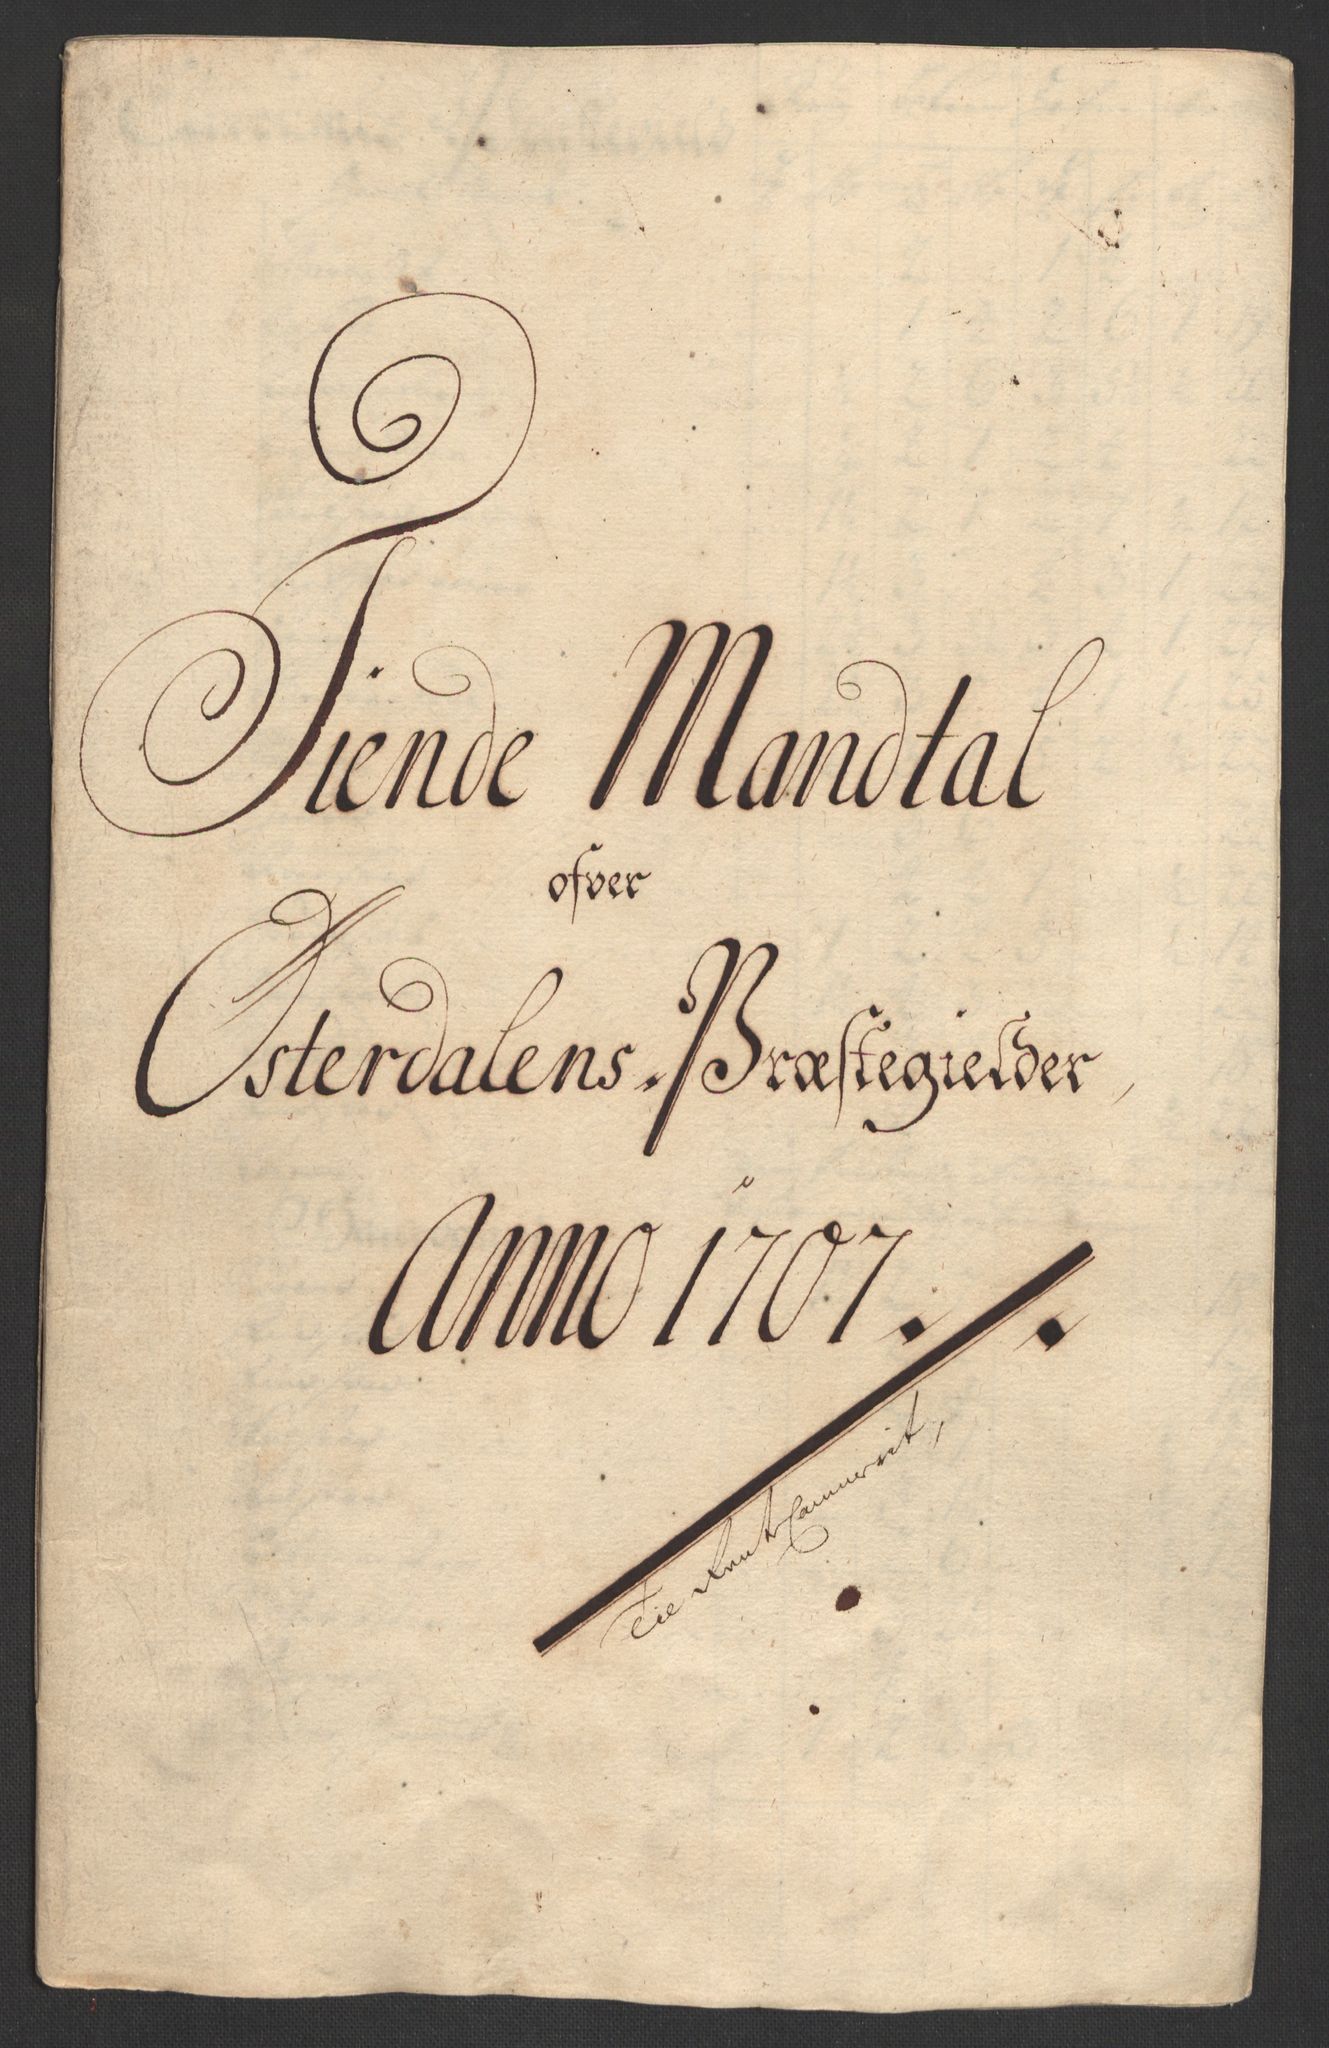 Tiende Mandtal
ofver
Østerdalens Præstegielder,
Anno 1707.
Til Rente Cammerit,